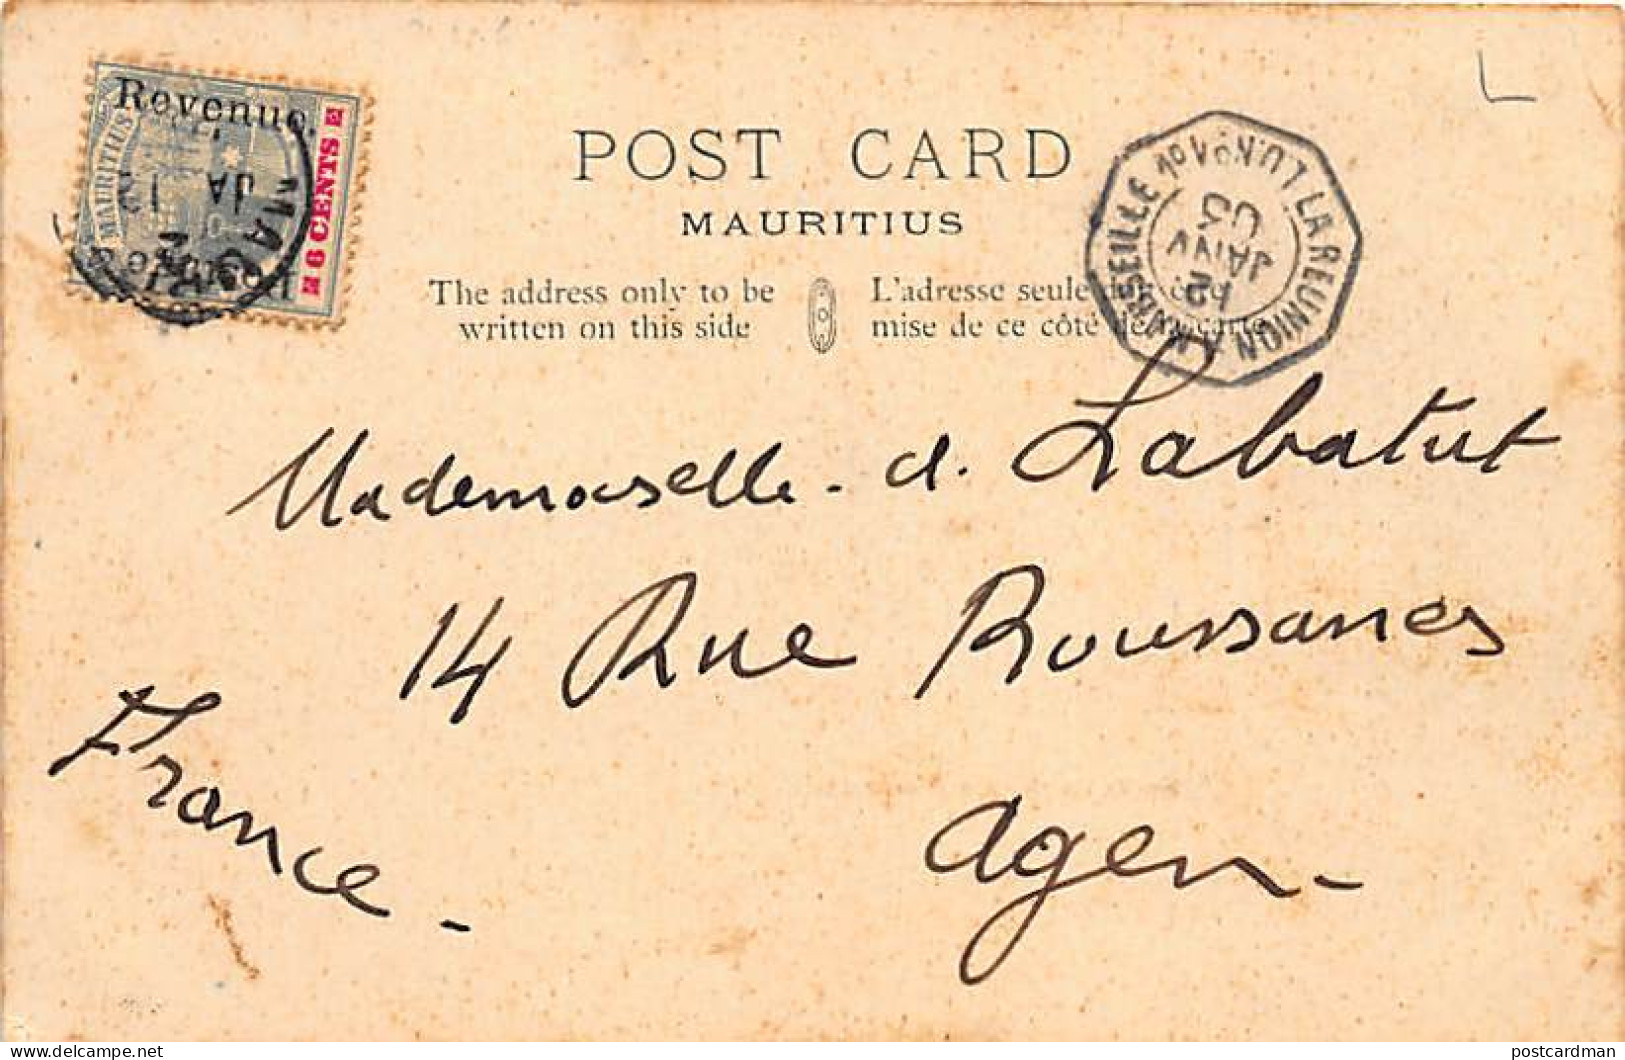 Revenue.
MAURITIUS
6 CENTS
Postage &
JA
POST CARD
MAURITIUS
The address only to be
written on this side
L'adresse seule doit être
mise de ce côté de la carte
LA REUNION
MARSEILLE
L.U.N
JANV
03
Mademoiselle. d. Labatut
14 Rue Roussanes
Agen -
France -
postcardman